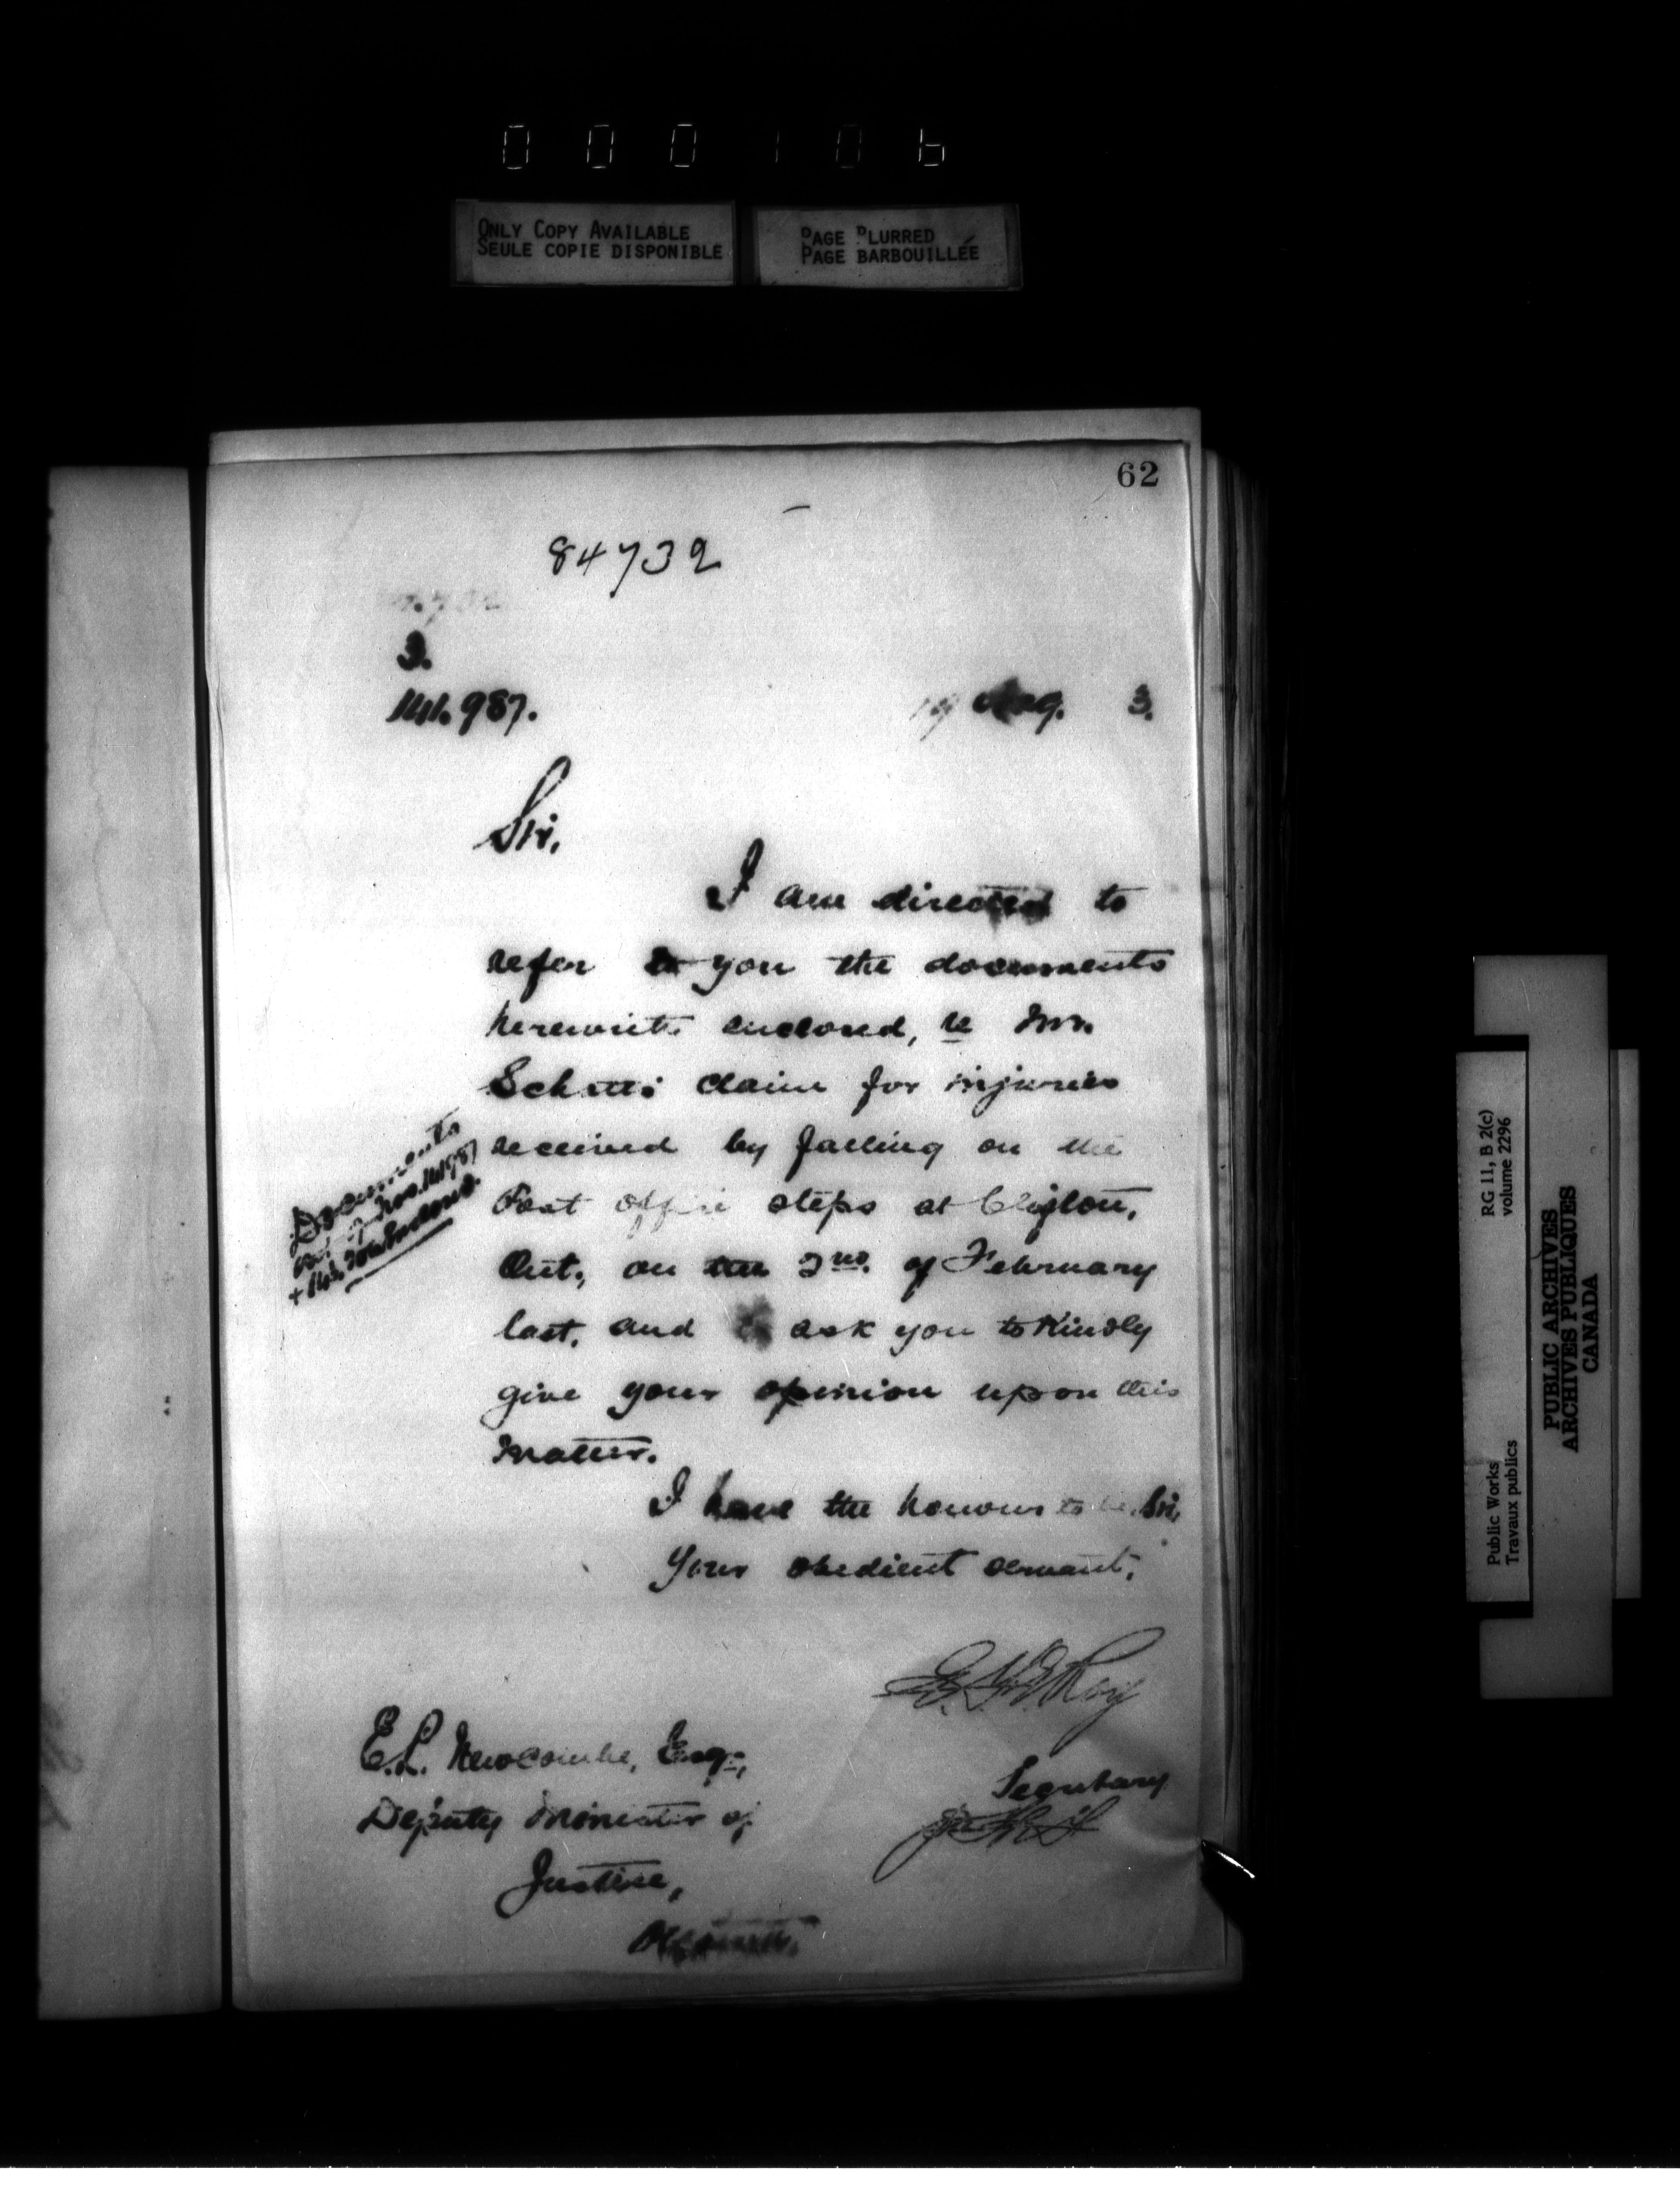 000106
ONLY COPY AVAILABLE
SEULE COPIE DISPONIBLE
PAGE BLURRED
PAGE BARBOUILLÉE
62
84732
3.
141.987.
19 Aug. 3.
Sir,
I am directed to
refer to you the documents
herewith enclosed, re Mr.
claim for injuries
received by falling on the
Post office steps at
Ont., on the 2nd. of February
last, and to ask you to kindly
give your opinion upon this
matter.
I have the honour to be, Sir,
Your obedient servant,
Documents
Nos. 141987
E.L. Newcombe, Esq.,
Deputy Minister of
Justice,
Ottawa.
Secretary
RG 11, B 2(c)
volume 2296
Public Works
Travaux publics
PUBLIC ARCHIVES
ARCHIVES PUBLIQUES
CANADA